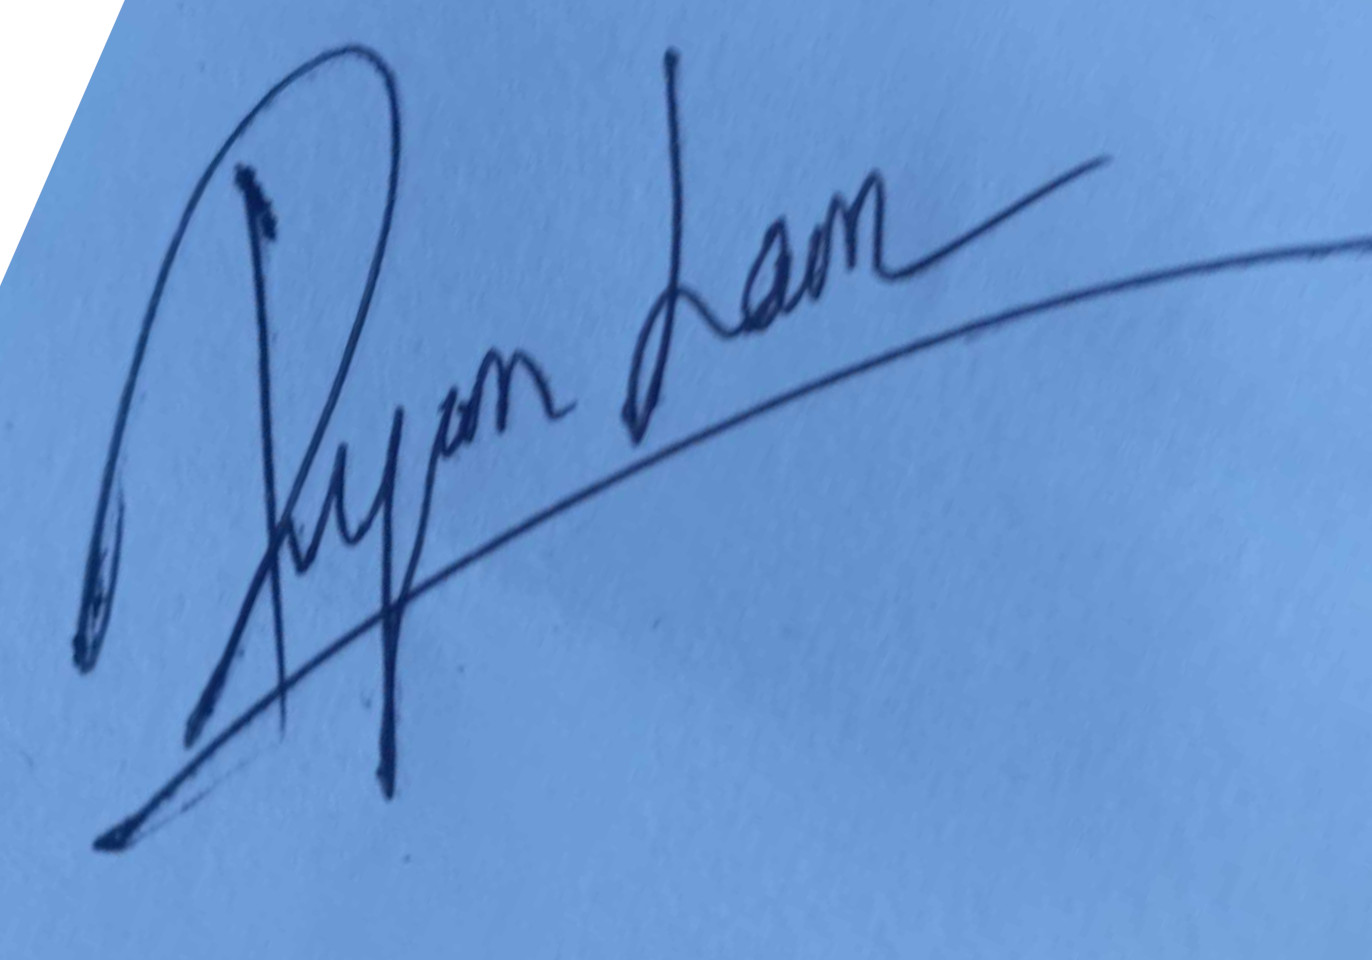 Ryan Lam